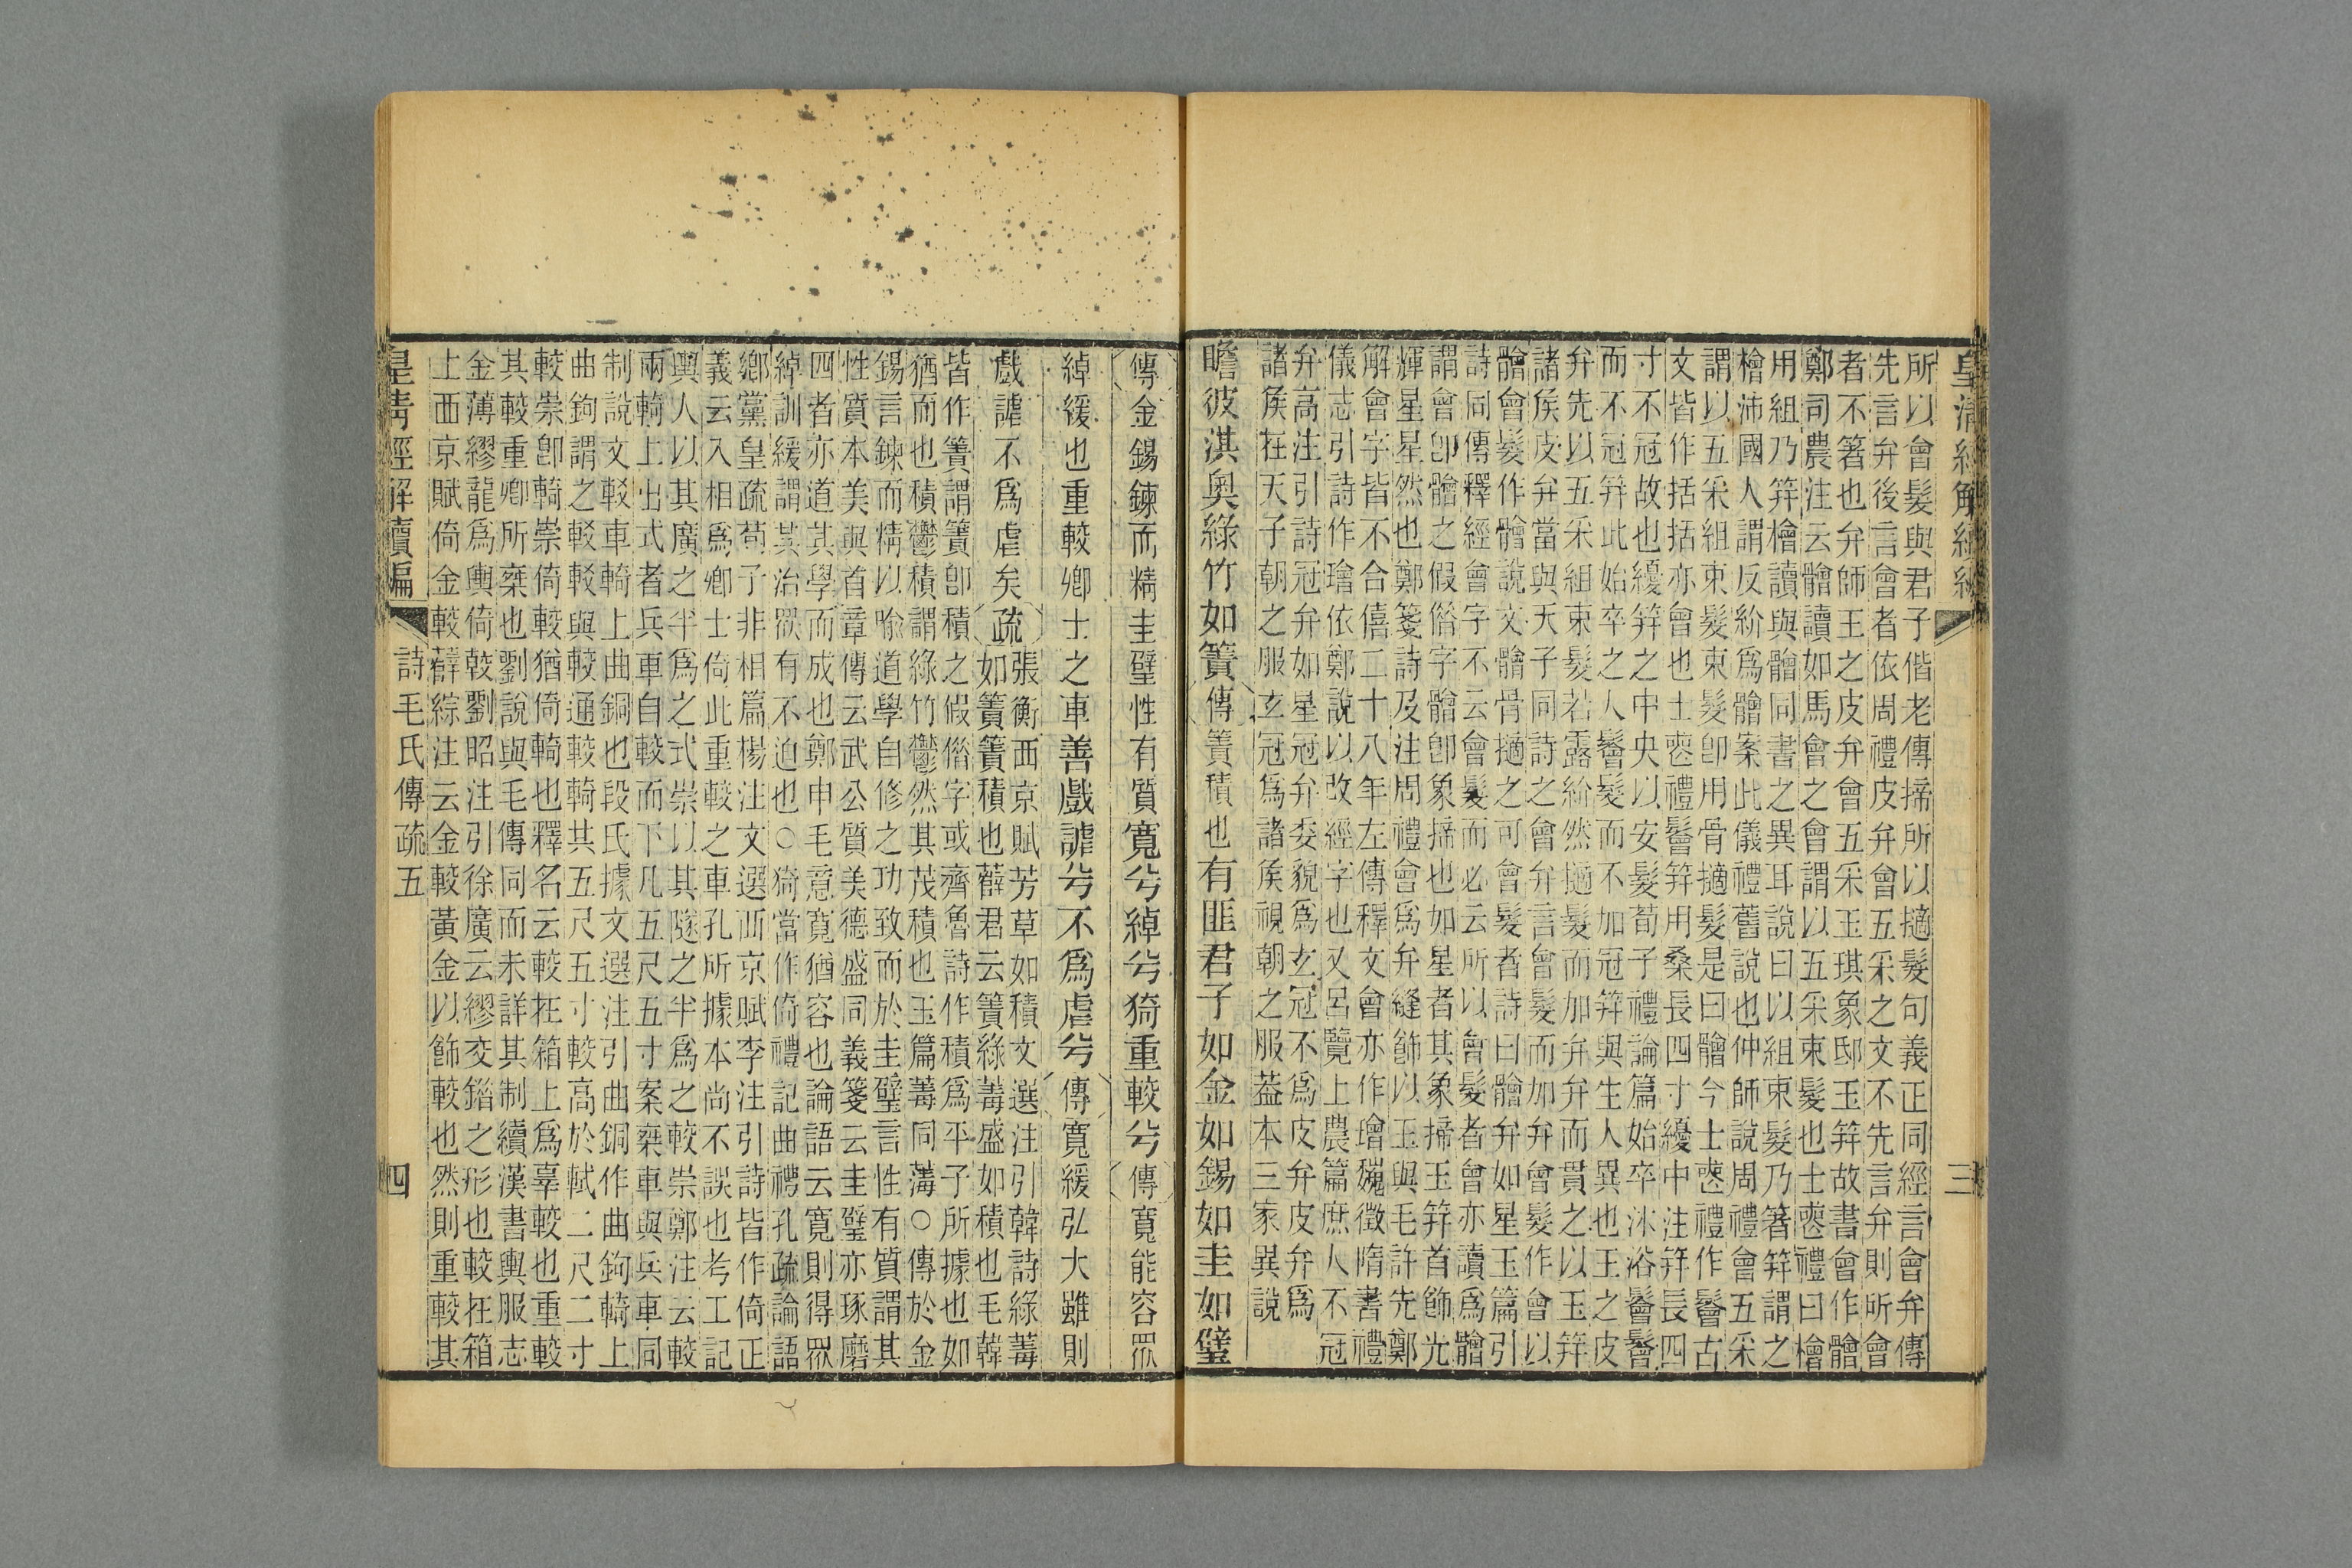 皇清經解續編
三
所以會髮與君子偕老傳掃所以擿髮句義正同經言會弁傳
先言弁後言會者依周禮皮弁會五采之文不先言弁則所會
者不箸也弁師王之皮弁會五采玉琪象邸玉笄故書會作䯤
鄭司農注云䯤讀如馬會之會謂以五采束髮也士喪禮曰檜
用組乃笄檜讀與䯤同書之異耳說曰以組束髮乃箸笄謂之
檜沛國人謂反紒爲䯤案此儀禮舊說也仲師說周禮會五采
謂以五采組束髮束髮卽用骨擿髮是曰䯤今士喪禮作鬠古
文皆作括括亦會也士喪禮鬠笄用桑長四寸纋中注笄長四
寸不冠故也纋笄之中央以安髮荀子禮論篇始卒沐浴鬠髻
而不冠笄此始卒之人鬠髮而不加冠笄與生人異也王之皮
弁先以五采組束髮若露紒然擿髮而加弁弁而貫之以玉笄
諸矦皮弁當與天子同詩之會弁言會髮而加弁會髮作會以
䯤會髮作䯤說文䯤骨擿之可會髮者詩曰䯤弁如星玉篇引
詩同傳釋經會字不云會髮而必云所以會髮者會亦讀爲䯤
謂會卽䯤之假俗字䯤卽象掃也如星者其象掃玉笄首飾光
輝星星然也鄭箋詩及注周禮會爲弁縫飾以玉與毛許先鄭
解會字皆不合僖二十八年左傳釋文會亦作璯㜲徵隋書禮
儀志引詩作璯依鄭說以改經字也又呂覽上農篇庶人不冠
弁高注引詩冠弁如星冠弁委貌爲玄冠不爲皮弁皮弁爲
諸矦在天子朝之服玄冠爲諸矦視朝之服葢本三家異說
瞻彼淇奧綠竹如簀傳簀積也有匪君子如金如錫如圭如璧
傳金錫鍊而精圭璧性有質寬兮綽兮猗重較兮傳寬能容眾
綽緩也重較卿士之車善戲謔兮不爲虐兮傳寬緩弘大雖則
戲謔不爲虐矣疏張衡西京賦芳草如積文選注引韓詩綠䔰
如簀簀積也薛君云簀綠䔰盛如積也毛韓
皆作簀謂簀卽積之假俗字或齊魯詩作積爲平子所據也如
猶而也積鬱積謂綠竹鬱然其茂積也玉篇䔰同薄○傳於金
錫言鍊而精以喩道學自修之功致而於圭璧言性有質謂其
性質本美與首章傳云武公質美德盛同義箋云圭璧亦琢磨
四者亦道其學而成也鄭申毛意寬猶容也論語云寬則得眾
綽訓緩謂其治眾有不迫也○猗當作倚禮記曲禮孔疏論語
鄉黨皇疏荀子非相篇楊注文選西京賦李注引詩皆作倚正
義云入相爲卿士倚此重較之車孔所據本尚不誤也考工記
輿人以其廣之半爲之式崇以其隧之半爲之較崇鄭注云較
兩輢上出式者兵車自較而下凡五尺五寸案棄車與兵車同
制說文較車輢上曲銅也段氏據文選注引曲銅作曲鉤輢上
曲鉤謂之較較與較通較輢其五尺五寸較高於軾二尺二寸
較崇卽輢崇倚較猶倚輢也釋名云較在箱上爲辜較也重較
其較重卿所棄也劉說與毛傳同而未詳其制續漢書輿服志
金薄繆龍爲輿倚較劉昭注引徐廣云繆交錯之形也較在箱
上西京賦倚金較薛綜注云金較黃金以飾較也然則重較其
皇清經解續編
詩毛氏傳疏五
四